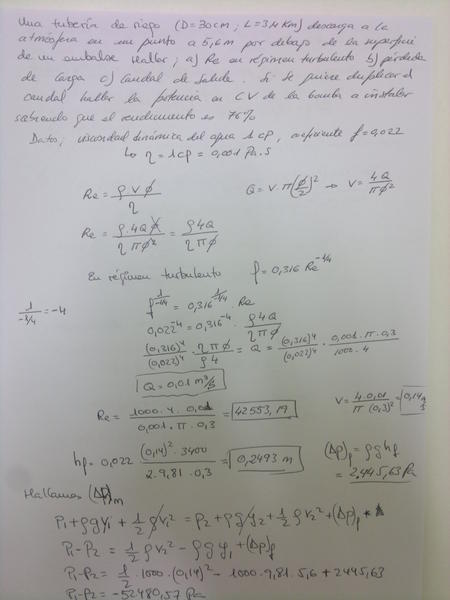 Una tubería de riego (D=30cm; L=3,4 Km) descarga a la
atmósfera en un punto a 5,6 m por debajo de la superficie
de un embalse. Hallar; a) Re en régimen turbulento b) pérdida
de carga c) Caudal de salida. Si se quiere duplicar el
caudal hallar la potencia en CV de la bomba a instalar
sabiendo que el rendimiento es 76%
Datos; viscosidad dinámica del agua 1 cP, coeficiente f=0,022
↳ η = 1 cP = 0,001 Pa.s
Re = ρ V φ / η    Q = V · π (φ/2)² → V = 4Q / πφ²
Re = ρ · 4Q φ / η π φ² = ρ 4Q / η π φ
En régimen turbulento    f = 0,316 Re^-1/4
1 / -1/4 = -4    f^1/-1/4 = 0,316^1/-1/4 · Re
0,022^-4 = 0,316^-4 · ρ 4Q / η π φ
(0,316)^4 / (0,022)^4 · η π φ / ρ 4 = Q = (0,316)^4 / (0,022)^4 · 0,001 · π · 0,3 / 1000 · 4
Q = 0,01 m³/s
Re = 1000 · 4 · 0,01 / 0,001 · π · 0,3 = 42553,19    V = 4 · 0,01 / π (0,3)² = 0,14
hf = 0,022 (0,14)² · 3400 / 2 · 9,81 · 0,3 = 0,2493 m    (Δp)f = ρ g hf
= 2.445,63 Pa
Hallamos (Δp)m
P1 + ρgy1 + 1/2 ρv1² = p2 + ρg y2 + 1/2 ρv2² + (Δp)f
P1-P2 = 1/2 ρv2² - ρg y1 + (Δp)f
P1-P2 = 1/2 · 1000 · (0,14)² - 1000 · 9,81 · 5,6 + 2445,63
P1-P2 = -52480,57 Pa